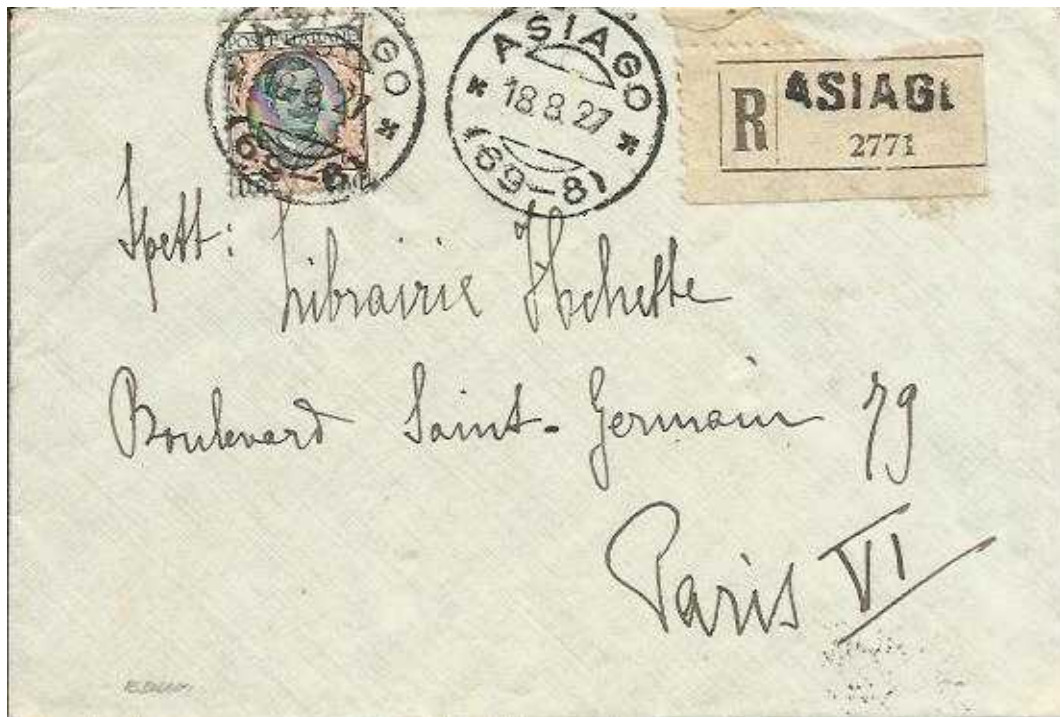 POSTE ITALIANE
ASIAGO
18.8.27
(69-8)
ASIAGO
18.8.27
(69-8)
R ASIAGO
2771
Spett: Librairie Hachette
Boulevard Saint-Germain 79
Paris VI